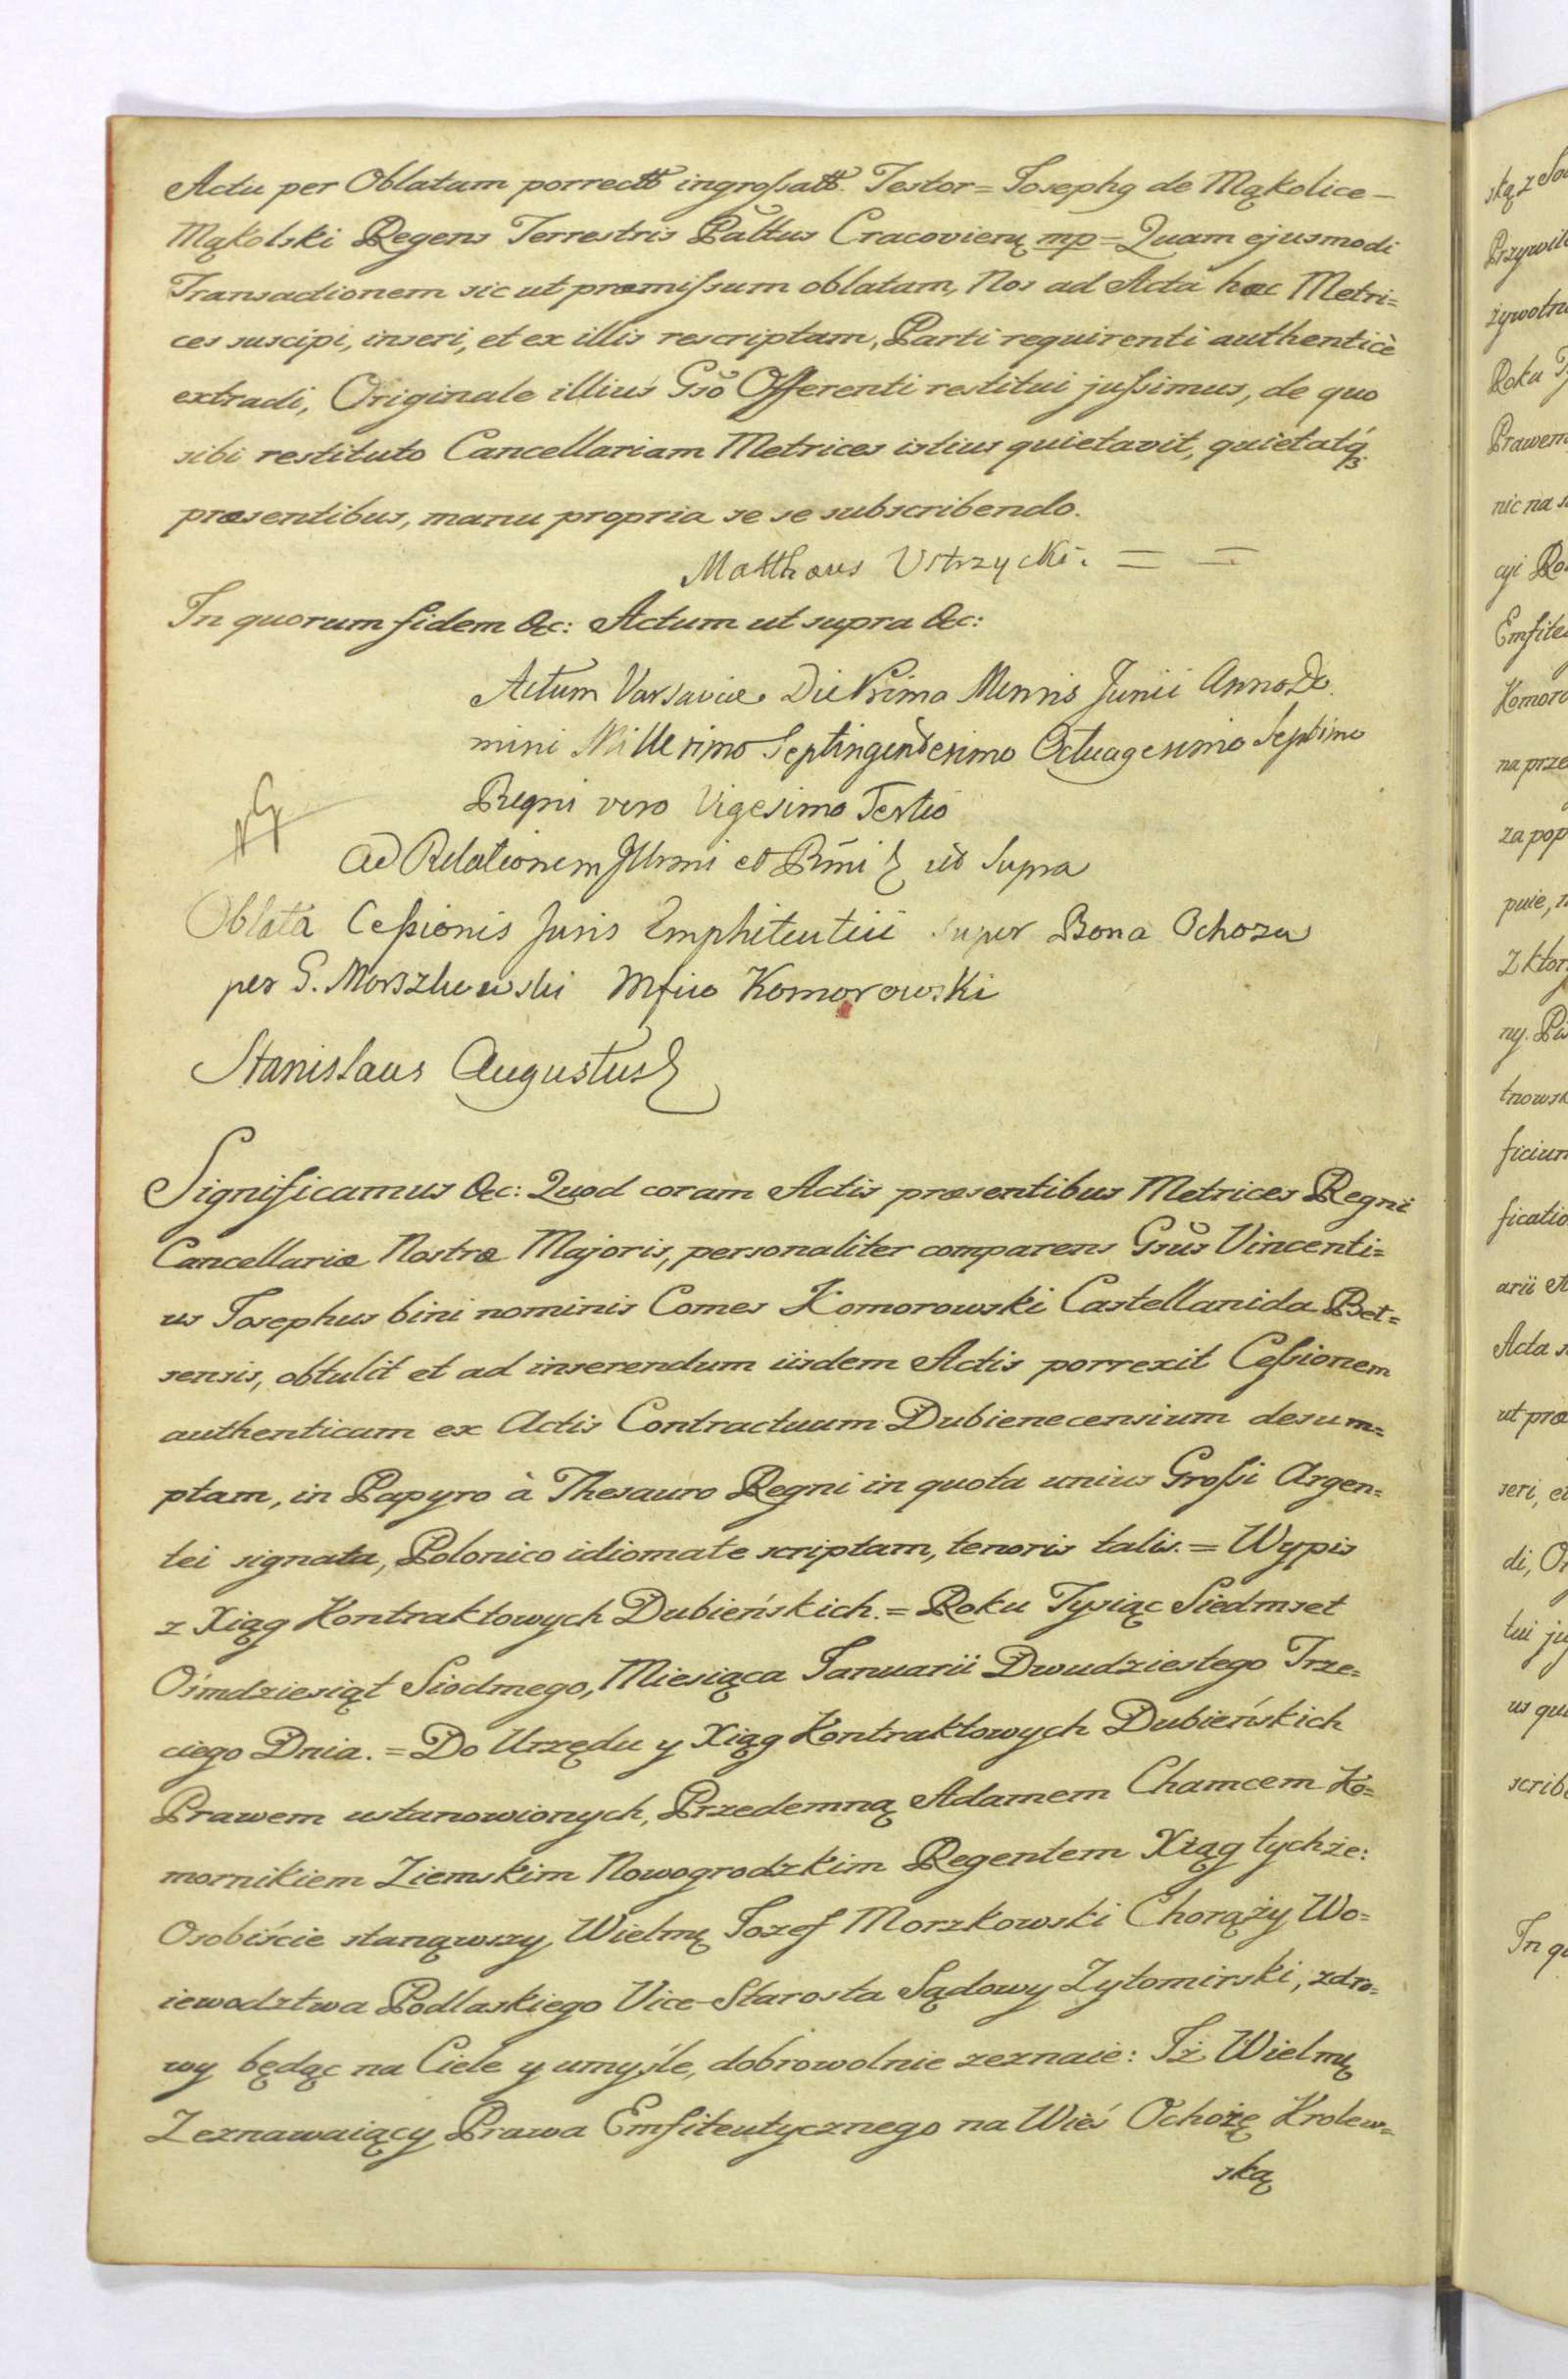 Actu per Oblatam porrectũ ingrossatũ. Testor = Josephg de Mąkolice –
Mąkolski Regens Terrestris Pălttus Cracovien̨ mp = Quam ejusmodi
Transactionem sic ut præmissum oblatam, Nos ad Acta hæc Metri=
ces suscipi, inseri, et ex illis rescriptam, Parti requirenti authenticè
extradi, Originale illius Gsŏ Offerenti restitui jussimus, de quo
sibi restituto Cancellariam Metrices istius quietavit, quietatq́3
præsentibus, manu propria se se subscribendo.
Matthæus Ustrzycki. = =
In quorum fidem &c: Actum ut supra &c:
Actum Varsaviæ Die Prima Mensis Junii Anno Do
mini Millesimo Septingentesimo Octuagesimo Septimo
Regni vero Vigesimo Tertio
Ad Relationem Illmi et Rm̃i ut Supra
Oblata Cessionis Juris Emphiteutici super Bona Ochoza
per G. Morszkowski Mfico Komorowski
Stanislaus Augustus
Significamus &c: Quod coram Actis præsentibus Metrices Regni
Cancellariæ Nostræ Majoris, personaliter comparens Gsŭs Vincenti=
us Josephus bini nominis Comes Komorowski Castellanida Bet=
sensis, obtulit et ad inserendum iisdem Actis porrexit Cessionem
authenticam ex Actis Contractuum Dubienecensium desum=
ptam, in Papyro à Thesauro Regni in quota unius Grossi Argen=
tei signata, Polonico idiomate scriptam, tenoris talis. = Wypis
z Xiąg Kontraktowych Dubieńskich. = Roku Tysiąc Siedmset
Ośmdziesiąt Siodmego, Miesiąca Januarii Dwudziestego Trze=
ciego Dnia. = Do Urzędu y Xiąg Kontraktowych Dubieńskich
Prawem ustanowionych, Przedemną Adamem Chamcem Ko=
mornikiem Ziemskim Nowogrodzkim Regentem Xiąg tychże:
Osobiście stanąwszy Wielmę Jozef Morzkowski Chorąży Wo=
iewodztwa Podlaskiego Vice-Starosta Sądowy Zytomirski, zdro=
wy będąc na Ciele y umyśle, dobrowolnie zeznaie: Iż Wielmę
Zeznawaiący Prawa Emfiteutycznego na Wieś Ochożę Krolew=
ską